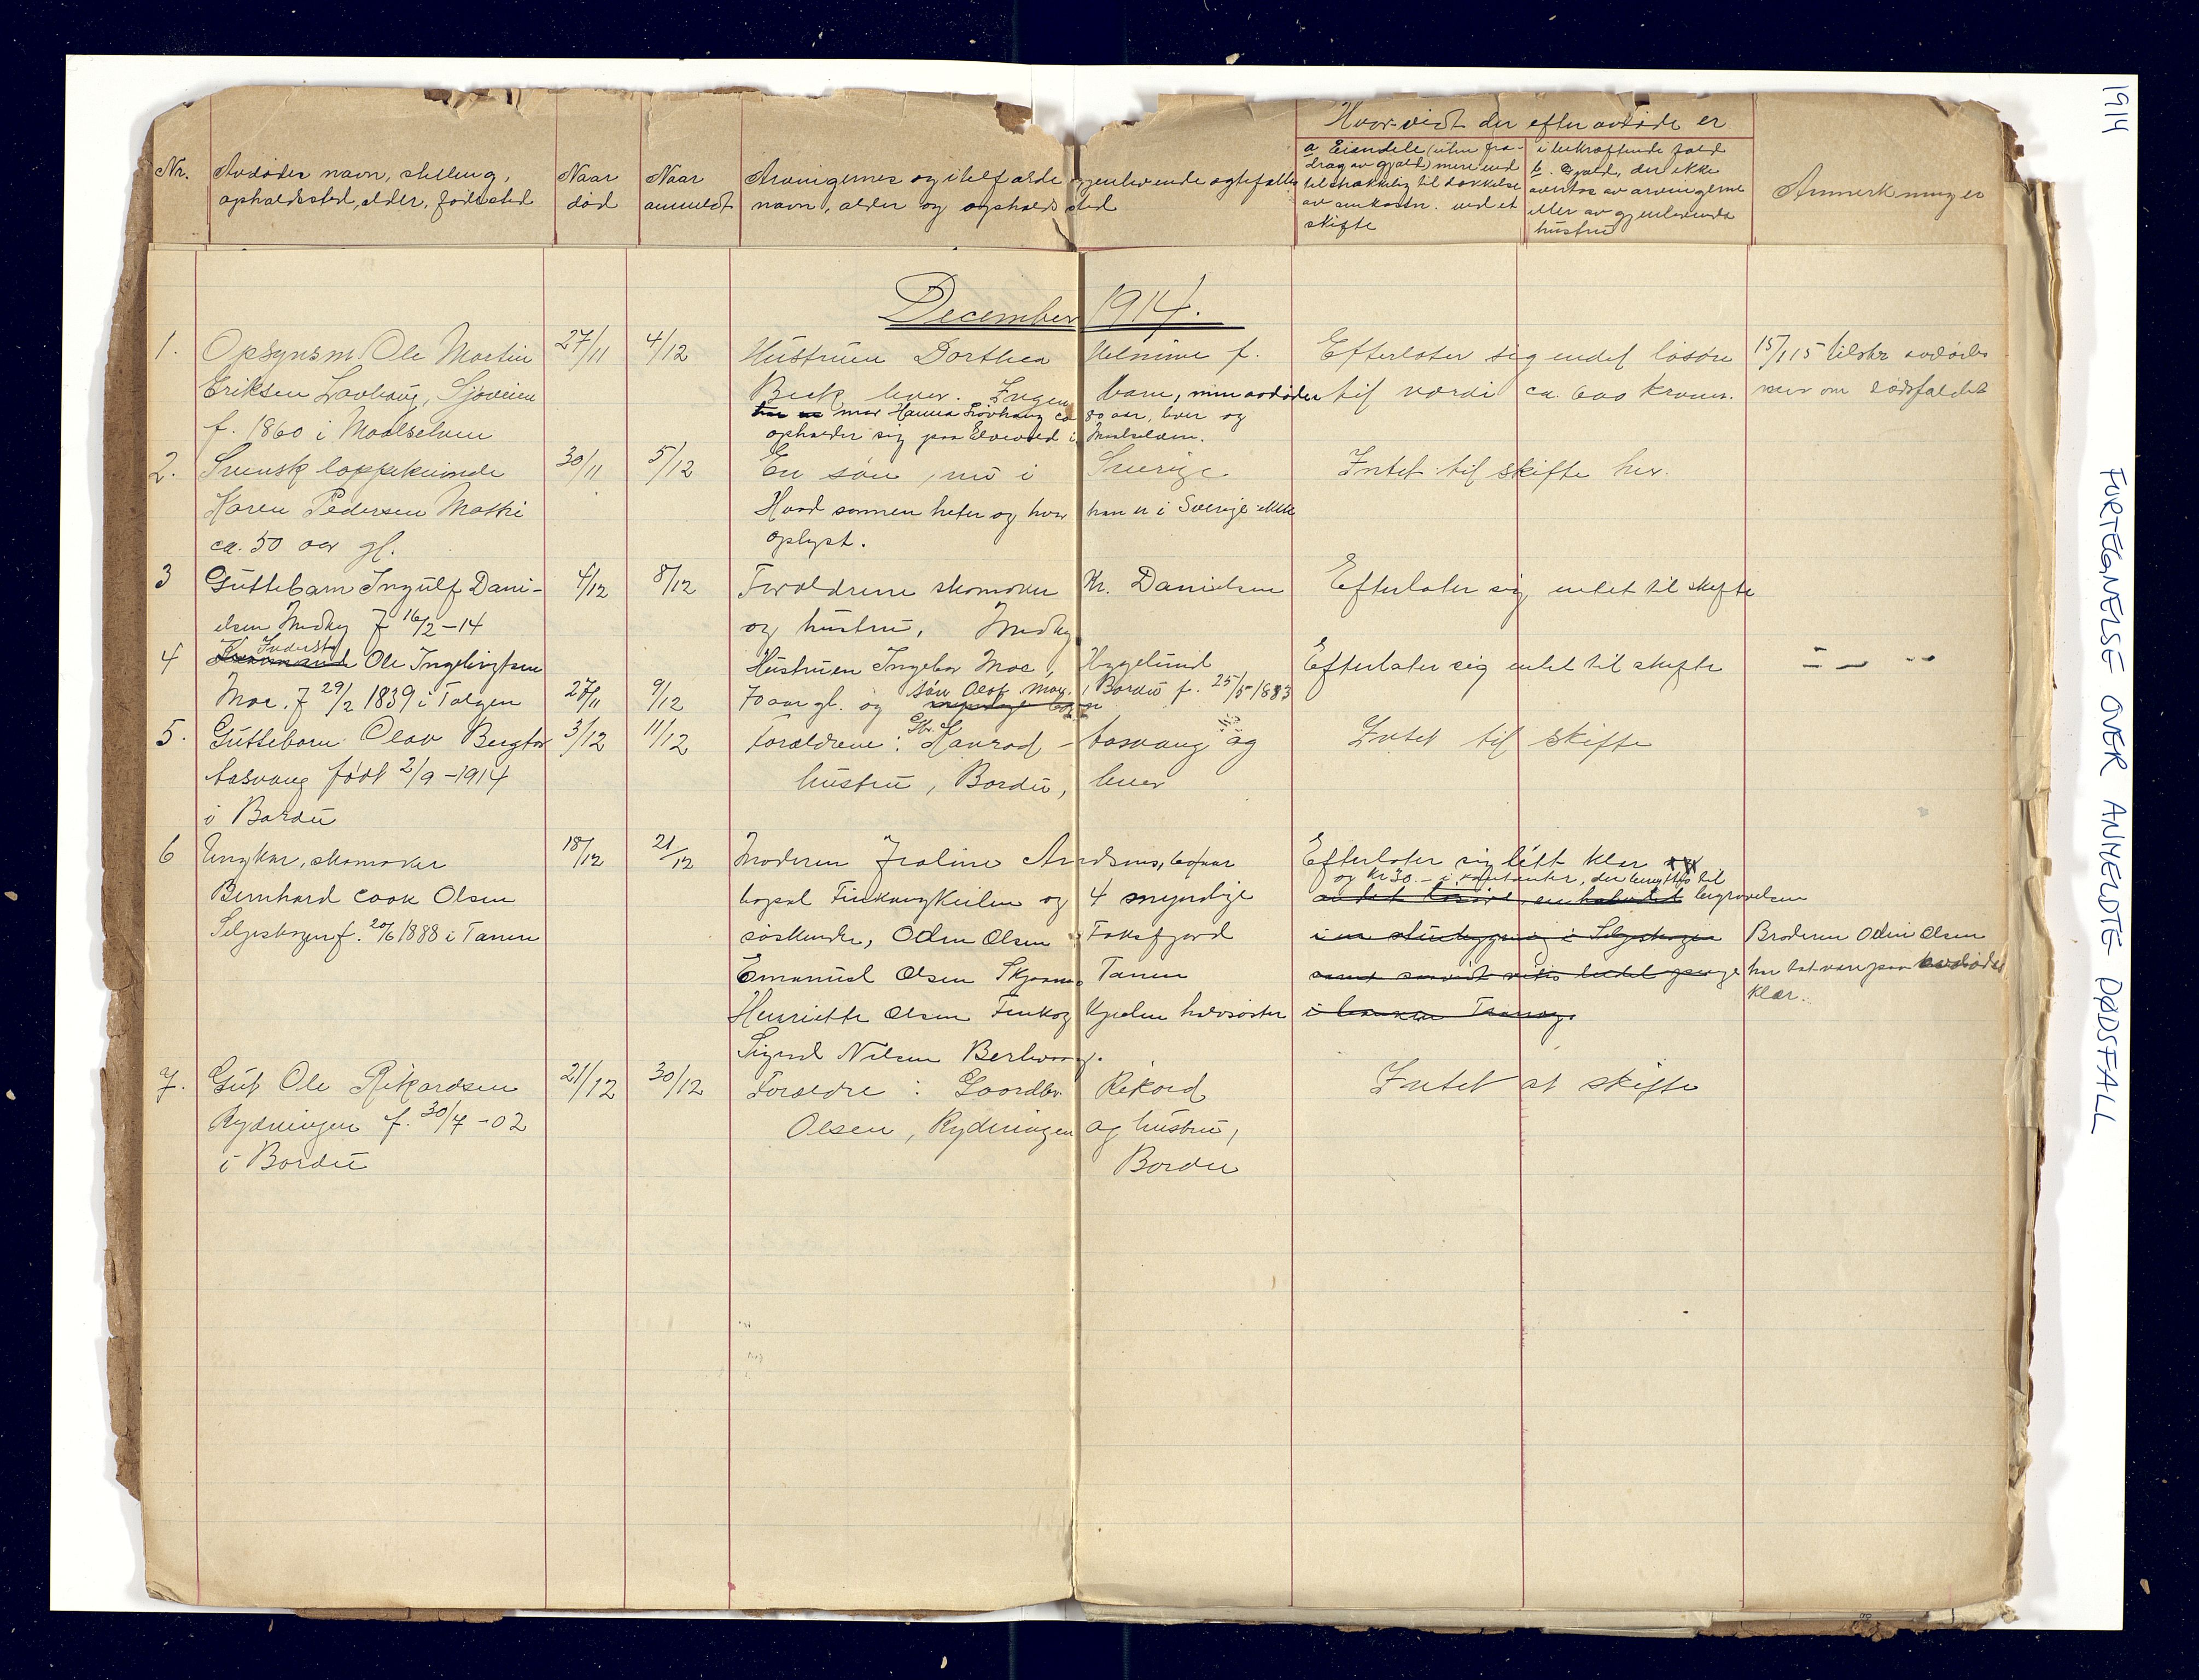 1914
FORTEGNELSE OVER ANMELDTE DØDSFALL
Nr.
Avdødes navn, stilling,
opholdssted, alder, fødested
Naar
død
Naar
anmeldt
Arvingernes og i tilfælde gjenlevende ægtefælles
navn, alder og opholdssted
Hvorvidt der efter avdøde er
a Eiendele (uten fra-
drag av gjæld) mere end
tilstrækkelig til dækkelse
av omkostn. ved et
skifte
i bekræftende fald
b. Gjæld, der ikke
overtas av arvingerne
eller av gjenlevende
hustru
Anmerkninger
December 1914.
1.
Opsynsm. Ole Martin
Eriksen Løvhaug, Sjøveien
f. 1860 i Maalselven
27/11
4/12
Hustruen Dorthea Helmine f.
Beck lever. Ingen barn, men avdødes
mor Hanna Løvhaug ca 80 aar, lever og
opholder sig paa Elvevold i Maalselven.
Efterlater sig endel løsøre
til værdi ca. 600 kroner.
15/1 15 tilskr avdødes
mor om dødsfaldet
2.
Svensk lappekvinde
Karen Pedersen Mathi
ca. 50 aar gl.
30/11
5/12
En søn, nu i Sverige
Hvad sønnen heter og hvor han er i Sverige ikke
oplyst.
Intet til skifte her.
3
Guttebarn Ingulf Dani-
elsen Indby f 16/2 -14
4/12
8/12
Forældrene skomaker Kr. Danielsen
og hustru, Indby
Efterlater sig intet til skifte
4
Inderst
Ole Ingebrigtsen
Moe. f 29/2 1839 i Tolgen
27/11
9/12
Hustruen Ingebor Moe, Hegelund
70 aar gl. og søn Olof Moe, i Bardu f. 25/5 1883
Efterlater sig intet til skifte
5.
Guttebarn Olav Bergtor
Aasvang født 2/9 -1914
i Bardu
3/12
11/12
Forældrene: Gbr. Konrad Aasvang og
hustru, Bardu, lever
Intet til skifte
6
Ungkar, skomaker
Bernhard Cook Olsen
Seljeskogen f. 20/6 1888 i Tanen
18/12
21/12
Moderen Fraline Andsens, 60 aar
bopæl Finkongkeilen og 4 myndige
søskende, Odin Olsen Toksfjord
Emanuel Olsen Skjaanes Tanen
Henriette Olsen Finkog Kjeilen halvsøster
Sigrid Nilsen Berlevaag.
Efterlater sig litt klær
og Kr 30.- i kontanter, der benyttes til
begravelsen
Broderen Odin Olsen
har tat vare paa avdødes
klær.
7.
Gut Ole Rikardsen
Rydningen f. 30/7 -02
i Bardu
21/12
30/12
Forældre: Gaardbr. Rikard
Olsen, Rydningen og hustru,
Bardu
Intet at skifte